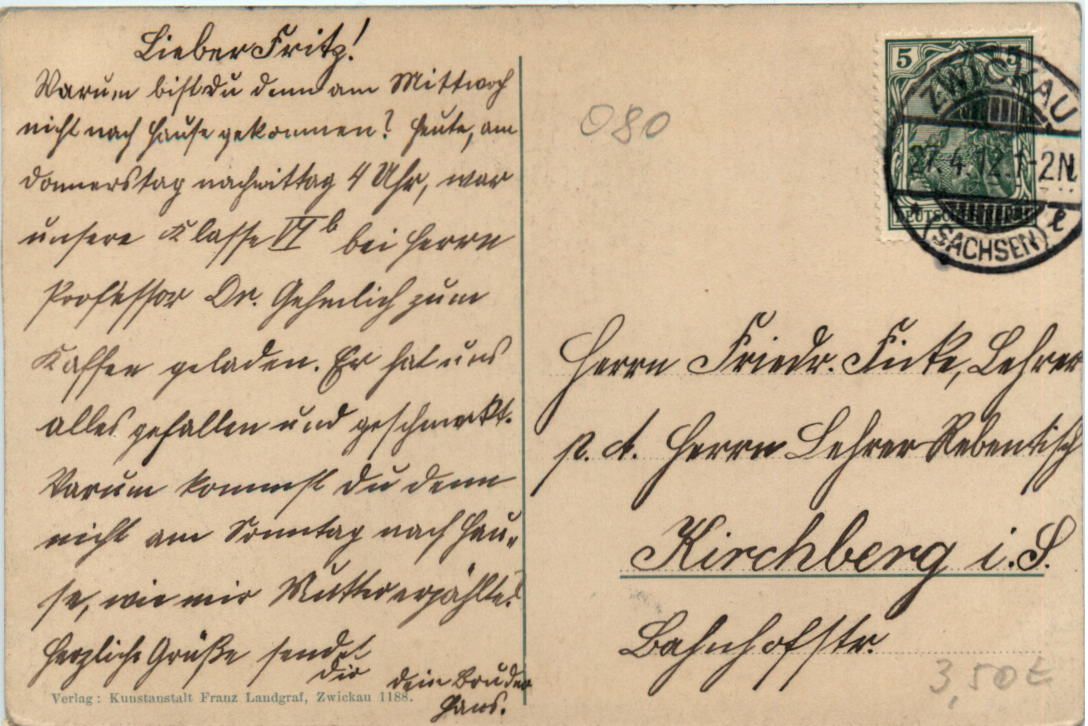 Lieber Fritz!
Warum bist du denn am Mittwoch
nicht nach Hause gekommen? Heute, am
Donnerstag nachmittag 4 Uhr, war
unsere Klasse VI b bei Herrn
Professor Dr. Gehmlich zum
Kaffee geladen. Er hat uns
alles gefallen und geschmeckt.
Warum kommst du denn
nicht am Sonntag nach Hau-
se, wie mir Mutter erzählte?
Herzliche Grüße sendet
dir dein Bruder
Hans.
Verlag: Kunstanstalt Franz Landgraf, Zwickau 1188.
080
5 5
DEUTSCHES REICH
ZWICKAU
27.4.12.1-2N.
(SACHSEN)
Herrn Friedr. Ficke, Lehrer
p. A. Herrn Lehrer Rebentisch
Kirchberg i. S.
Bahnhofstr.
3,50 €